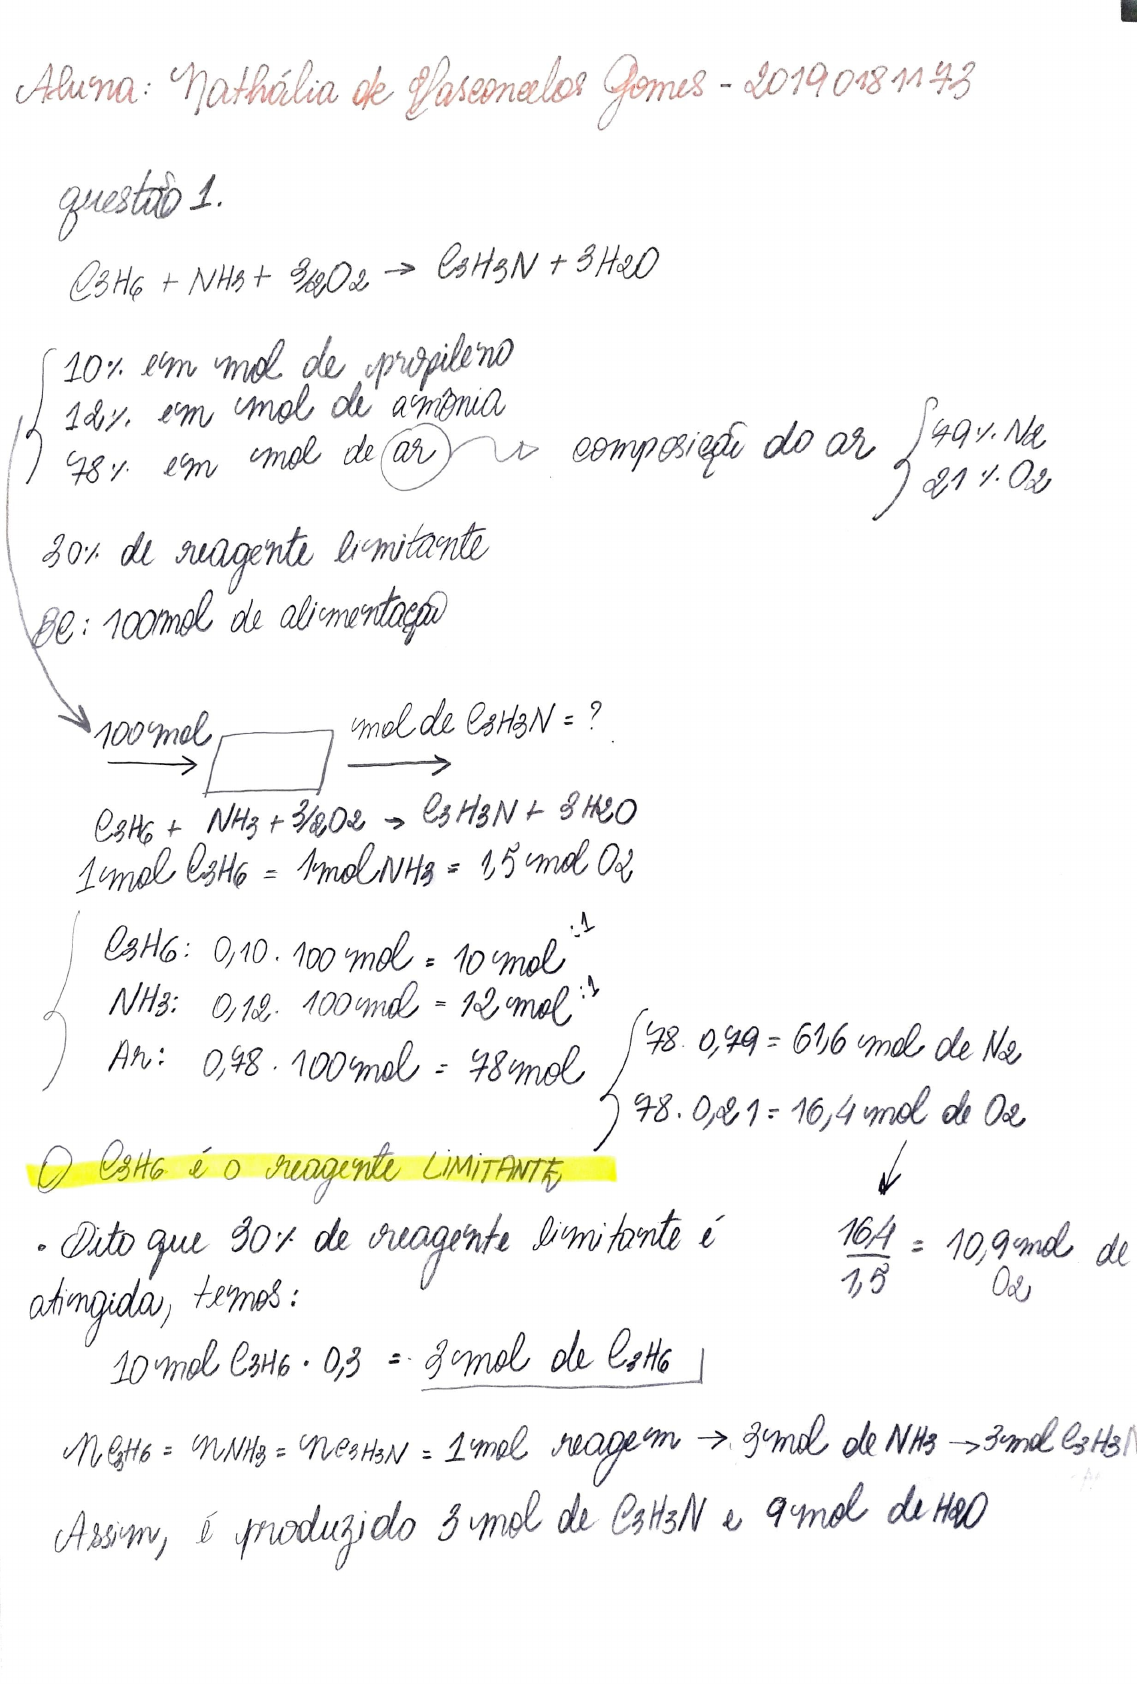 Aluna: Nathália de Vasconcelos Gomes - 20190181173
questão 1.
C3H6 + NH3 + 3/2O2 → C3H3N + 3H2O
10% em mol de propileno
12% em mol de amônia
78% em mol de ar → composição do ar { 79% N2
21% O2
30% de reagente limitante
BC: 100mol de alimentação
100mol → mol de C3H3N = ?
C3H6 + NH3 + 3/2O2 → C3H3N + 3H2O
1mol C3H6 = 1molNH3 = 1,5 mol O2
C3H6: 0,10 . 100 mol = 10 mol :1
NH3: 0,12 . 100mol = 12 mol :1
Ar: 0,78 . 100mol = 78mol
78. 0,79 = 61,6 mol de N2
78. 0,21 = 16,4 mol de O2
O C3H6 é o reagente LIMITANTE
16,4/1,5 = 10,9 mol de O2
• Dito que 30% de reagente limitante é
atingida, temos:
10 mol C3H6 . 0,3 = 3 mol de C3H6
nC3H6 = nNH3 = nC3H3N = 1 mol reagem → 3mol de NH3 → 3mol C3H3N
Assim, é produzido 3 mol de C3H3N e 9 mol de H2O